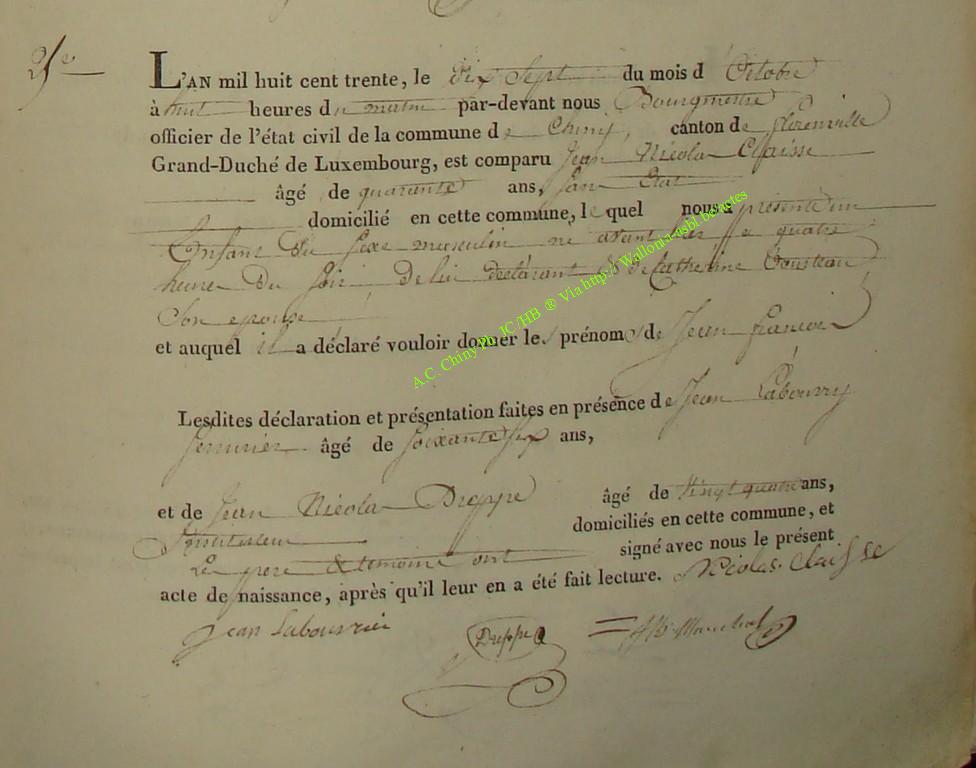 25e
L'AN mil huit cent trente, le dix sept du mois d'Octobre
à huit heures du matin par-devant nous Bourgmestre
officier de l'état civil de la commune de Chiny, canton de florenville
Grand-Duché de Luxembourg, est comparu Jean Nicolas Claisse
âgé de quarante ans, sans Etat
domicilié en cette commune, le quel nous a présenté un
Enfant du sexe masculin né avant hier a quatre
heures du soir, de lui déclarant & de Catherine
son epouse
et auquel il a déclaré vouloir donner les prénoms de Jean francois
Lesdites déclaration et présentation faites en présence de Jean Labouvry
serrurier âgé de soixante six ans,
et de Jean Nicolas Druppe âgé de vingt quatre ans,
Instituteur domiciliés en cette commune, et
Le pere & temoins ont signé avec nous le présent
acte de naissance, après qu'il leur en a été fait lecture. Nicolas Claisse
Jean Labouvrie Druppe
A.C. Chiny Ph. JC /HB ® Via http:// Wallonia-asbl be/actes